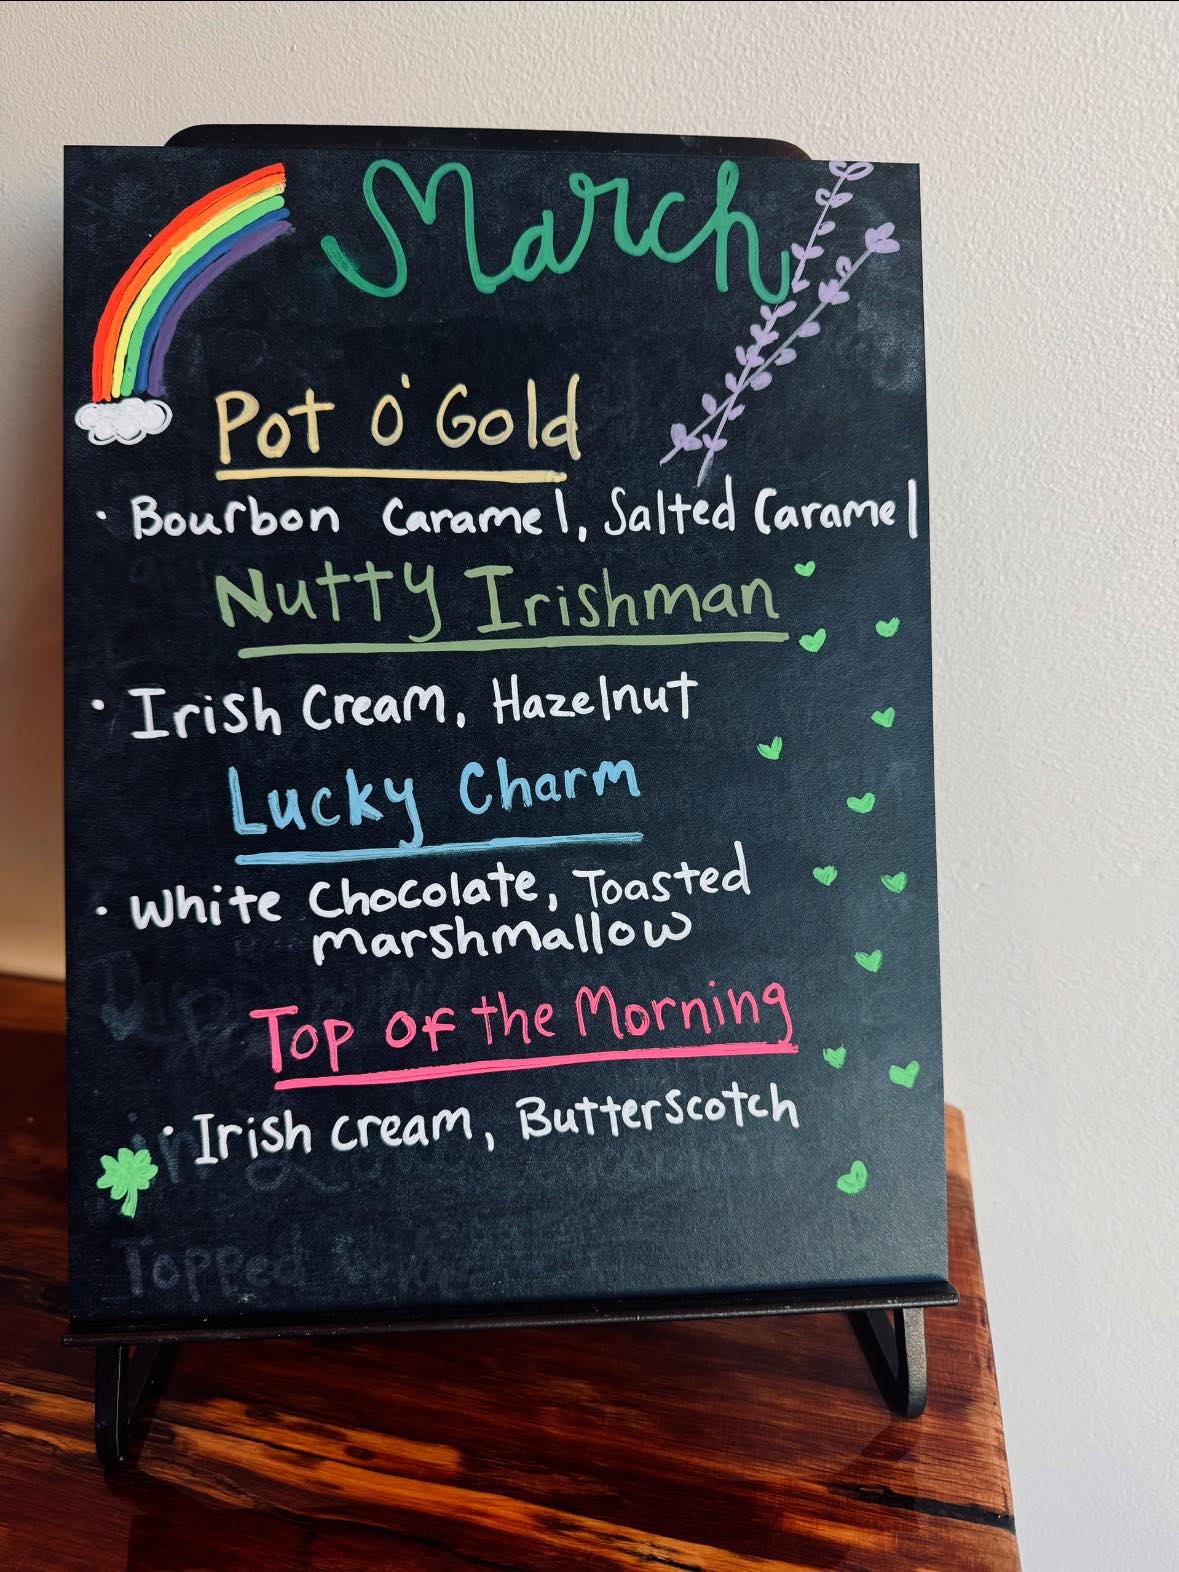 March
Pot O' Gold
· Bourbon Caramel, Salted Caramel
Nutty Irishman
· Irish Cream, Hazelnut
Lucky Charm
· White Chocolate, Toasted
marshmallow
Top of the Morning
· Irish cream, Butterscotch
Topped with